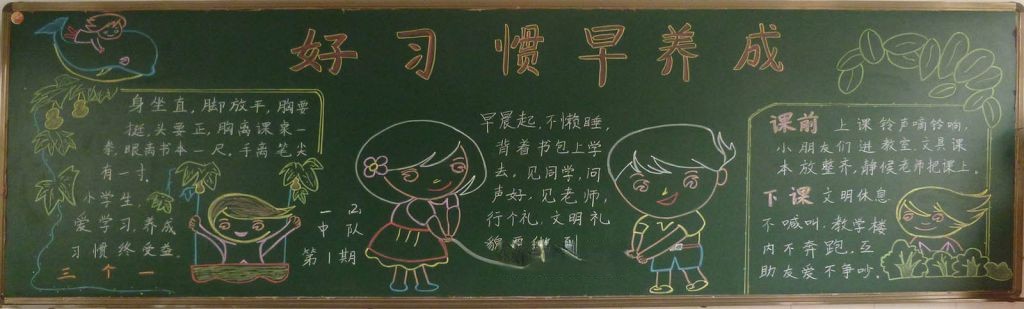 好习惯早养成
身坐直，脚放平，胸要
挺，头要正，胸离课桌一
拳，眼离书本一尺，手离笔尖
有一寸。
小学生，
爱学习，养成
习惯终受益。
三个一
一
中队
第1期
早晨起，不懒睡，
背着书包上学
去，见同学，问
声好，见老师，
行个礼，文明礼
貌
课前 上课铃声嘀铃响，
小朋友们进教室，文具课
本放整齐，静候老师把课上。
下课 文明休息
不喊叫，教学楼
内不奔跑，互
助友爱不争吵。